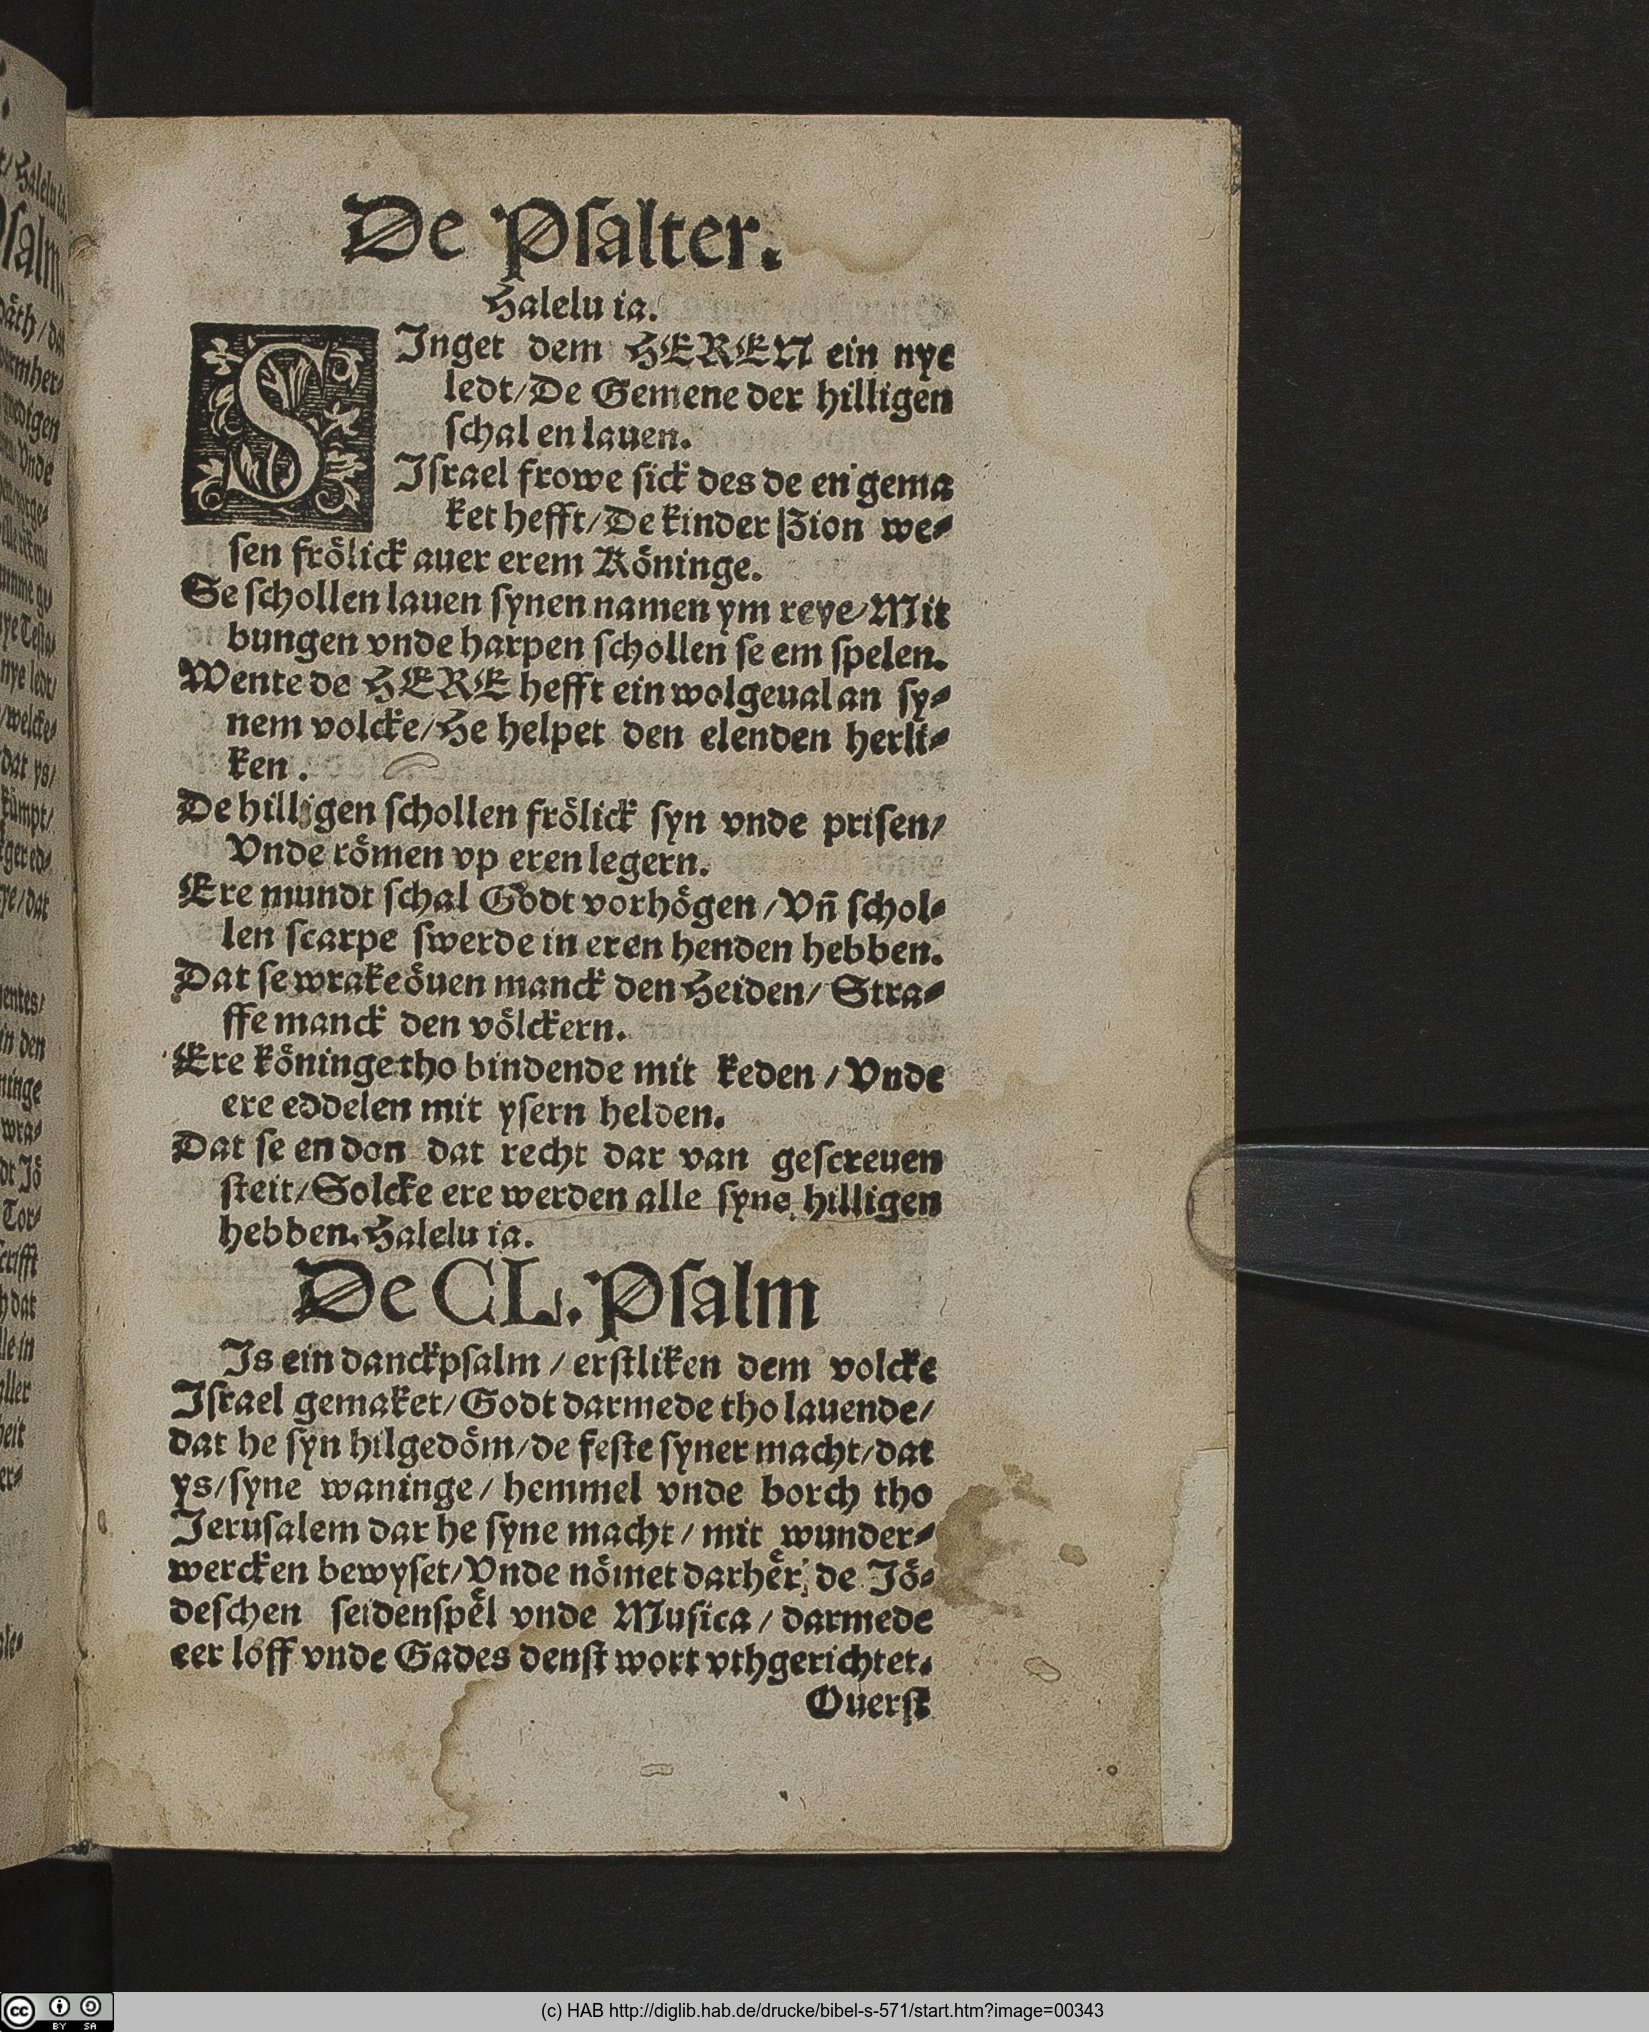 De Psalter.
Halelu ia.
SInget dem HEREN ein nye
ledt/De Gemene der hilligen
schal en lauen.
Israel frowe sick des de en gema
ket hefft/De kinder Zion we⸗
sen froͤlick auer erem Koͤninge.
Se schollen lauen synen namen ym reye/Mit
bungen vnde harpen schollen se em spelen.
Wente de HERE hefft ein wolgeual an sy⸗
nem volcke/He helpet den elenden herli⸗
ken.
De hilligen schollen froͤlick syn vnde prisen/
Vnde roͤmen vp eren legern.
Ere mundt schal Godt vorhoͤgen/Vñ schol⸗
len scarpe swerde in eren henden hebben.
Dat se wrake oͤuen manck den Heiden/Stra⸗
ffe manck den voͤlckern.
Ere koͤninge tho bindende mit keden/Vnde
ere eddelen mit ysern helden.
Dat se en don dat recht dar van gescreuen
steit/Solcke ere werden alle syne hilligen
hebben. Halelu ia.
De CL. Psalm
Is ein danckpsalm/erstliken dem volcke
Israel gemaket/Godt darmede tho lauende/
dat he syn hilgedoͤm/de feste syner macht/dat
ys/syne waninge/hemmel vnde borch tho
Jerusalem dar he syne macht/mit wunder⸗
wercken bewyset/Vnde noͤmet darheͤr de Joͤ⸗
deschen seidenspeͤl vnde Musica/darmede
eer loff vnde Gades denst wort vthgerichtet.
Ouerst
(c) HAB http://diglib.hab.de/drucke/bibel-s-571/start.htm?image=00343
cc BY SA